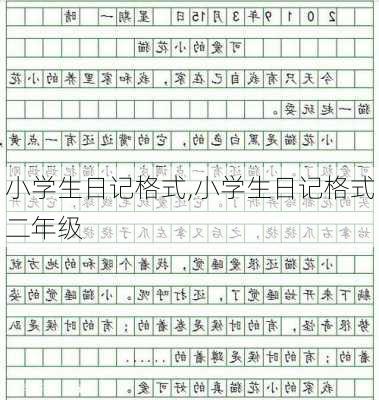 2019年3月15日 星期一 晴
可爱的小花猫
今天只有我自己在家，我和家里养的小花
猫一起玩耍。
小花猫是黑白色的，它的嘴边还有一点黄，
小学生日记格式,小学生日记格式
二年级
小花猫还很爱睡觉，找着个暖和的地方就
躺下来开始睡觉了，还打呼呢。小猫睡觉的姿
势很奇怪，有的时候是卷着的；有的时候是趴
着的；有的时候是蹲着的......
我家的小花猫真的好可爱。